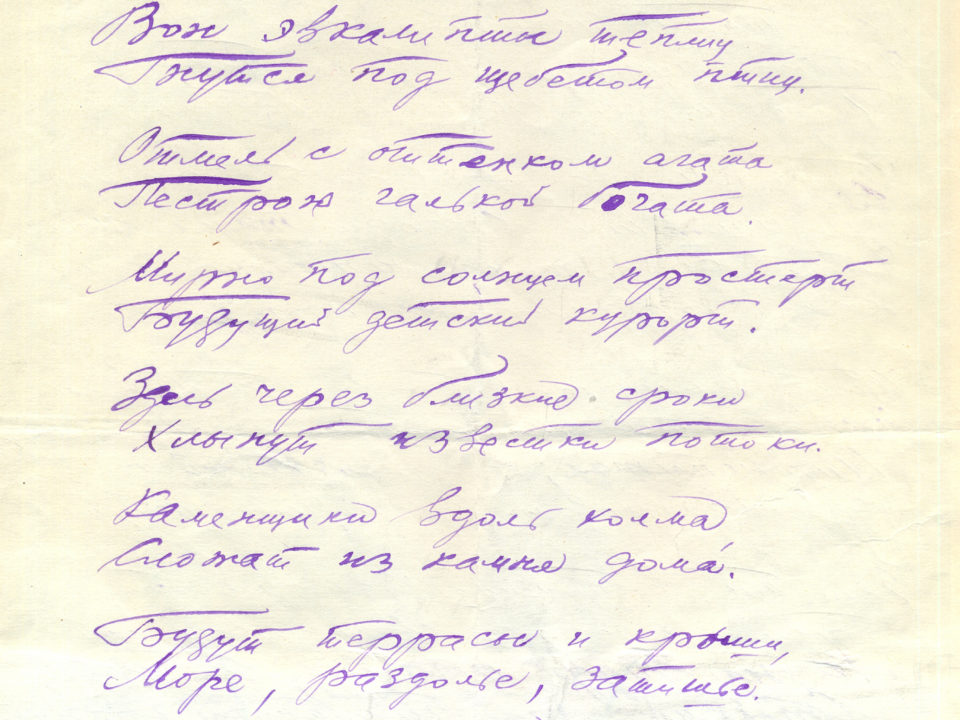 Вон эвкалипты теплиц
Гнутся под щебетом птиц.
Отмель с оттенком агата
Пестрою галькой богата.
Мирно под солнцем простерт
Будущий детский курорт.
Здесь через близкие сроки
Хлынут известки потоки.
Каменщики вдоль холма
Сложат из камня дома́.
Будут террасы и крыши,
Море, раздолье, затишье.